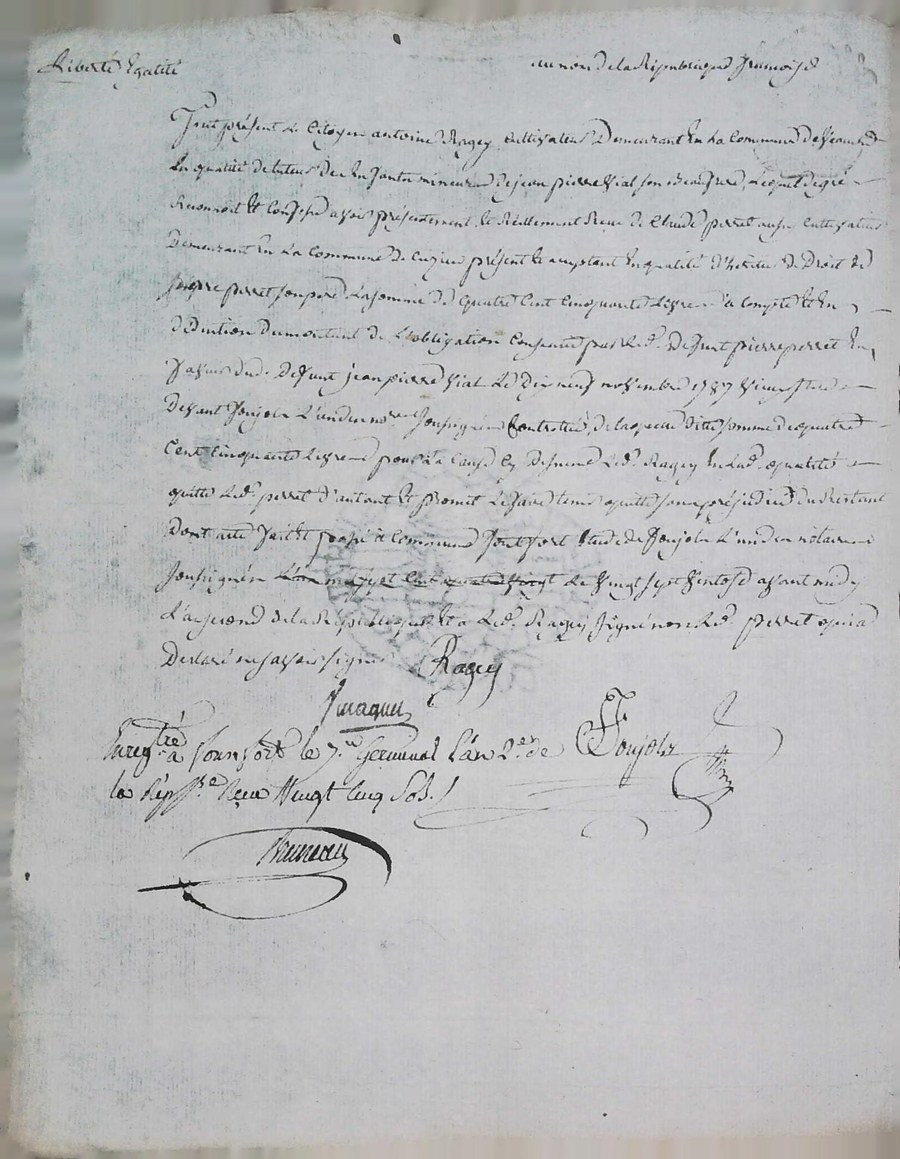 Liberté Egalité
au nom de la Republique françoise
fut présent le Citoyen antoine Ragey cultivateur Demeurant En la Commune de
En qualité de tuteur des Enfants mineurs de jean pierre Vial son Beaufrere, lequel degré
Reconnoit et Confesse avoir présentement et Réellement Receu de Claude perret aussy cultivateur
Demeurant En la Commune de Cuzieu présent et acceptant En qualité d'heritier de Droit de
perret son pere La somme de Quatre Cent Cinquante Livres à compte et En
Déduction du montant de L'obligation Consentie par led. Defunt pierre perret En
faveur dud. Defunt jean pierre Vial Le Dix neuf novembre 1787
Devant Joujoln L'un des nres soussignés Controllée, de laquelle ditte somme de quatre
Cent Cinquante Livres pour La Cause cy Dessus Led. Ragey En lad. qualité
quitte led. perret d'autant et promet Le faire tenir quitte sans préjudice du Restant
Dont acte fait et passé à Commune fontfort Etude de Joujoln L'un des notaires
soussignés L'an mil sept Cent quatre vingt Le vingt sept Ventose avant midy
L'an second de la République et a led. Ragey signé non led. perret qui a
Declaré ne savoir signer Ragey
Jmaquet
Enregtré à fonfort le 7.e Germinal l'an 2.e de Joujoln
la Répque Receu Vingt Cinq Sols
Bruneau